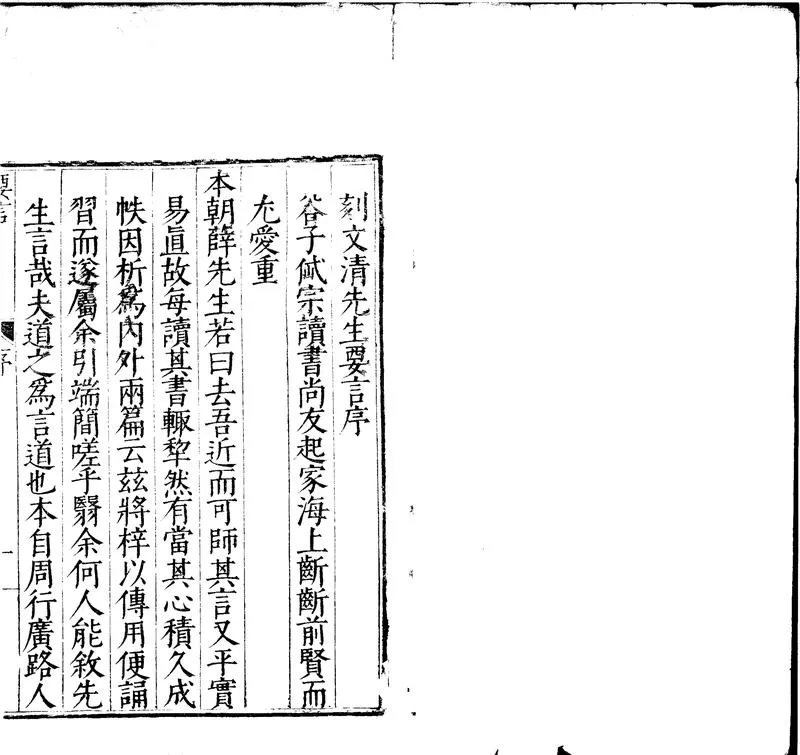 刻文清先生要言序
谷子弑宗讀書尚友起家海上齗齗前賢而
尤愛重
本朝薛先生若曰去吾近而可師其言又平實
易眞故每讀其書輙犂然有當其心積久成
帙因析爲內外兩篇云茲將梓以傳用便誦
習而遂屬余引端簡嗟乎翳余何人能敘先
生言哉夫道之爲言道也本自周行廣路人
要言
序
一